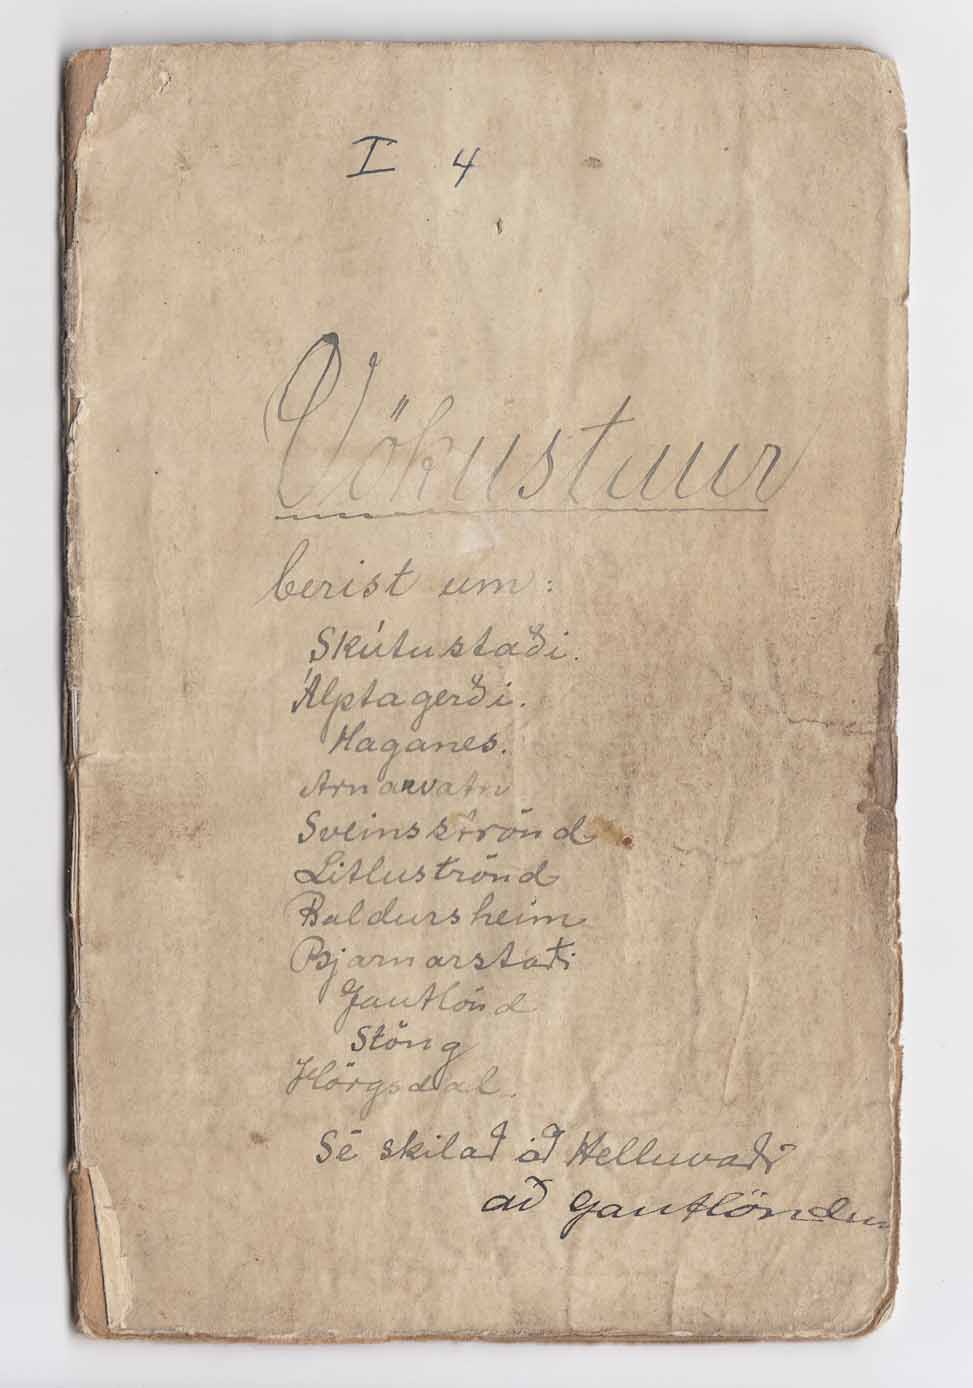 I 4
Vökustaur
berist um:
Skútustaði.
Álptagerði.
Haganes.
Arnarvatn
Sveinsströnd
Litluströnd
Baldursheim
Bjarnarstaði
Gautlönd
Stöng
Hörgsdal.
Sé skilað að Helluvaði
að Gautlöndum